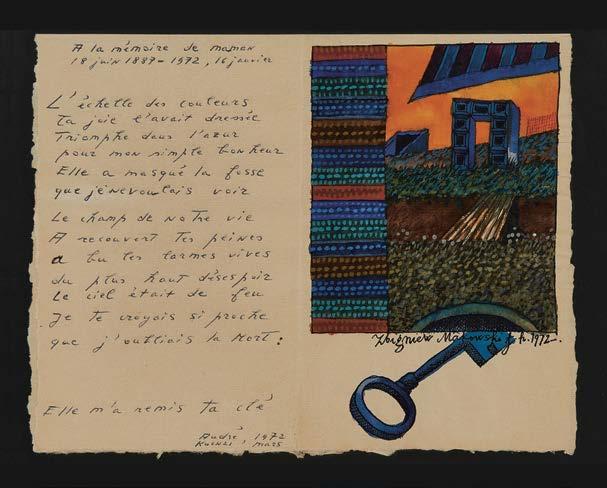 A la mémoire de maman
18 juin 1887 - 1972, 16 janvier
L'échelle des couleurs
Ta joie l'avait dressée
Triomphe dans l'azur
pour mon simple bonheur
Elle a masqué la fosse
que je ne voulais voir
Le champ de notre vie
A recouvert tes peines
a bu tes larmes vives
du plus haut désespoir
Le ciel était de feu
Je te croyais si proche
que j'oubliais la Mort:
Elle m'a remis ta clé
André, 1972
Kuenzi, mars
Zbigniew Makowski f. 1972.